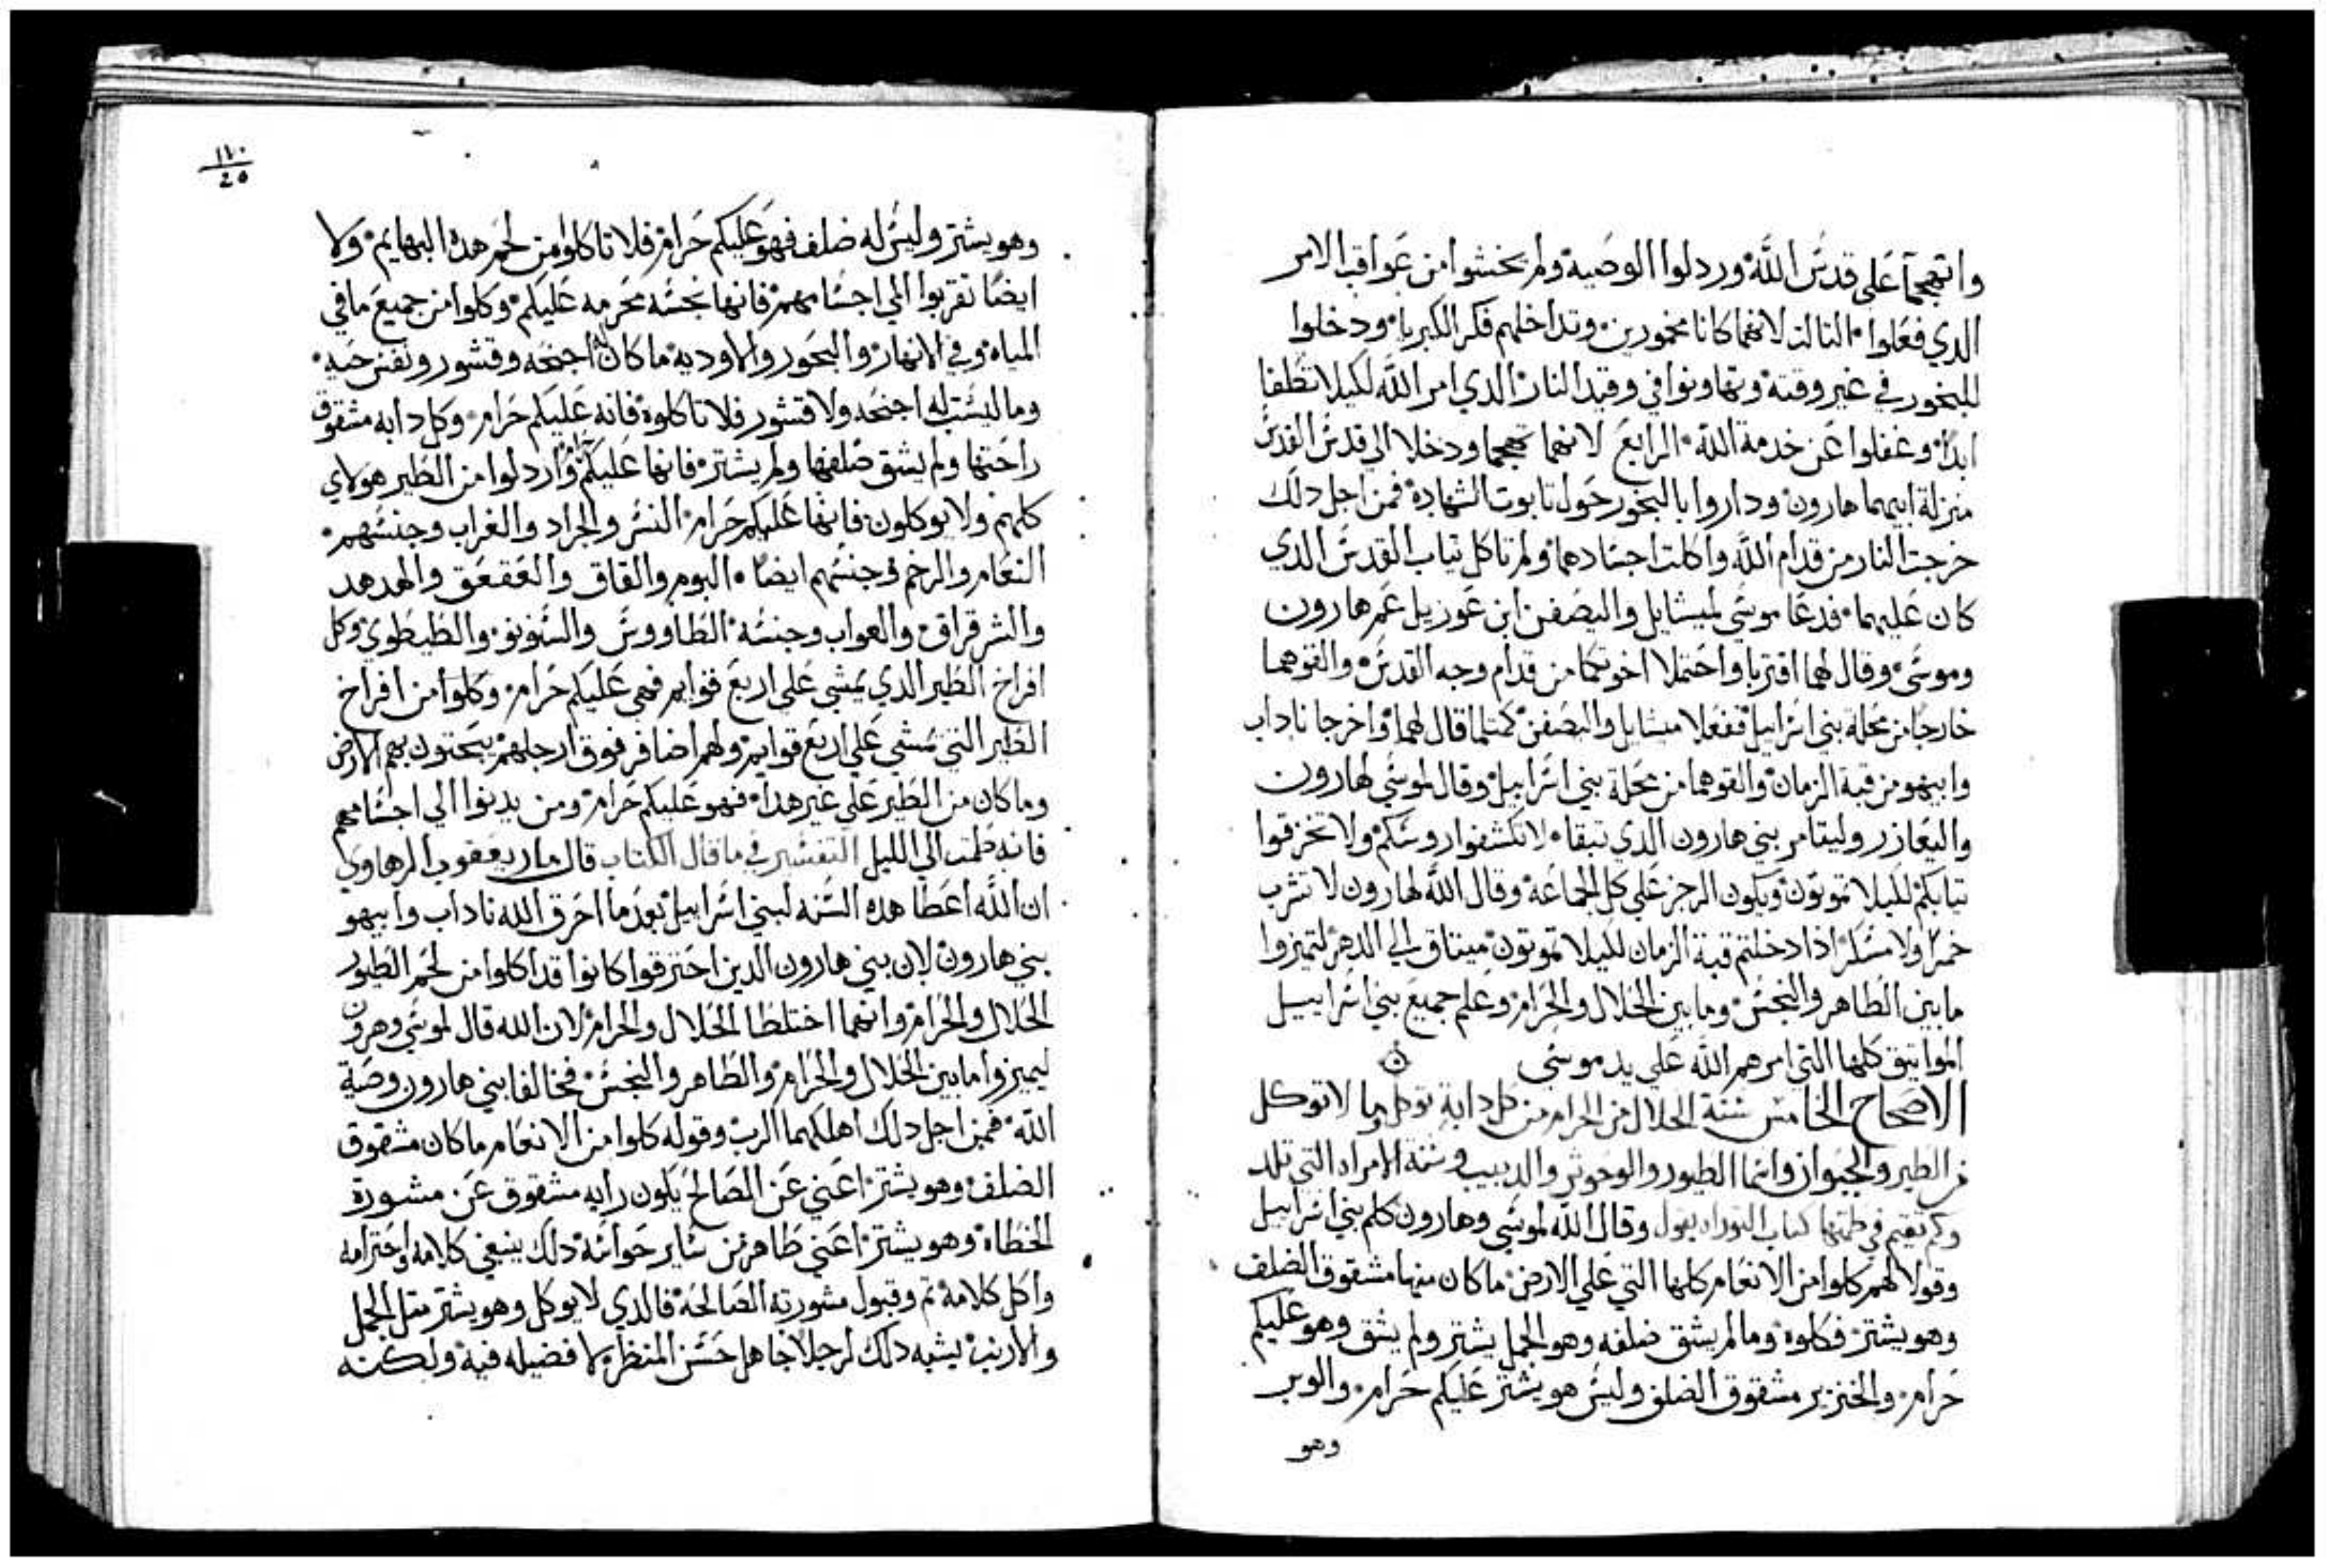 واتهجما على قدس الله وردلوا الوصية ولم يخشوا من عواقب الامر
الدي فعلوا التالت لانهما كانا مخمورين وتداخلهم فكر الكبريا ودخلوا
للبخور في غير وقته وتهاونوا في وقيد النار الدي امر الله لكيلا تطفا
ابدا وغفلوا عن خدمة الله الرابع لانهما تهجما ودخلا الى قدس القدس
منزلة ابيهما هارون وداروا بالبخور حول تابوت الشهادة فمن اجل دلك
خرجت النار من قدام الله واكلت اجسادهما ولم تاكل تياب القدس الدي
كان عليهما فدعا موسى لميشايل واليصفن ابن عوزيل عم هارون
وموسى وقال لهما اقتربا واحتملا اخوتكما من قدام وجه القدس والقوهما
خارجا من محلة بني اسراييل ففعلا ميشايل واليصفن كمتلما قال لهما واخرجا ناداب
وابيهو من قبة الزمان والقوهما من محلة بني اسراييل وقال موسى لهارون
واليعازر وليتامر بني هارون الدي تبقا لا تكشفوا روسكم ولا تخرقوا
تيابكم لكيلا تموتون ويكون الرجز على كل الجماعة وقال الله لهارون لا تشرب
خمرا ولا مسكر ادا دخلتم قبة الزمان لكيلا تموتون ميتاق الى الدهر لتميزوا
ما بين الطاهر والنجس وما بين الحلال والحرام وعلم جميع بني اسراييل
المواتيق كلها التي امرهم الله على يد موسى
الاصحاح الخامس سنة الحلال من الحرام من كل دابة توكل وما لا توكل
من الطير والحيوان واسما الطيور والوحوش والدبيب وسنة الامراه التي تلد
وكم تقيم في طمتها كتاب التوراه يقول وقال الله لموسى وهارون كلم بني اسراييل
وقولا لهم كلوا من الانعام كلها التي على الارض ما كان منها مشقوق الضلف
وهو يشتر فكلوه وما لم يشق ضلفه وهو الجمل يشتر ولم يشق وهو عليكم
حرام والخنزير مشقوق الضلف وليس هو يشتر عليكم حرام والوبر
وهو
١٢٠
20
وهو يشتر وليس له ضلف فهو عليكم حرام فلا تاكلوا من لحم هده البهايم ولا
ايضا تقربوا الي اجسامهم فانها نجسه محرمه عليكم وكلوا من جميع ما في
المياه وفي الانهار والبحور والاوديه ما كان له اجنحه وقشور ونفس حيه
وما ليست له اجنحه ولا قشور فلا تاكلوه فانه عليكم حرام وكل دابه مشقوق
راحتها ولم يشق ضلفها ولم يشتر فانها عليكم واردلوا من الطير هولاي
كلهم ولا يوكلون فانها عليكم حرام النسر والجراد والغراب وجنسهم
النعام والرخم وجنسهم ايضا البوم والقاق والعقعق والهدهد
والشرقراق والعواب وجنسه الطاووس والسنونو والطيطوي وكل
افراخ الطير الدي يمشي على اربع قوايم فهي عليكم حرام وكلوا من افراخ
الطير التي تمشي على اربع قوايم ولهم اضافر فوق ارجلهم يبحتون بهم الارض
وما كان من الطير على غير هدا فهو عليكم حرام ومن يدنوا الي اجسامهم
فانه طمت الي الليل التفسير في ما قال الكتاب قال مار يعقوب الرهاوي
ان الله اعطا هده السنه لبني اسراييل بعدما احرق الله ناداب وابيهو
بني هارون لان بني هارون الدين احترقوا كانوا قد اكلوا من لحم الطيور
الحلال والحرام وانهما اختلطا الحلال والحرام لان الله قال لموسى وهرون
ليميزوا ما بين الحلال والحرام والطاهر والنجس فخالفا بني هارون وصية
الله فمن اجل دلك اهلكهما الرب وقوله كلوا من الانعام ما كان مشقوق
الضلف وهو يشتر اعني عن الصالح يكون رايه مشقوق عن مشورة
الخطاه وهو يشتر اعني طاهر من ساير حواسه دلك ينبغي كلامه واحترامه
واكل كلامه تم وقبول مشورته الصالحه فالدي لا يوكل وهو يشتر متل الجمل
والارنب يشبه دلك لرجلا جاهل حسن المنظر لا فضيله فيه ولكنه